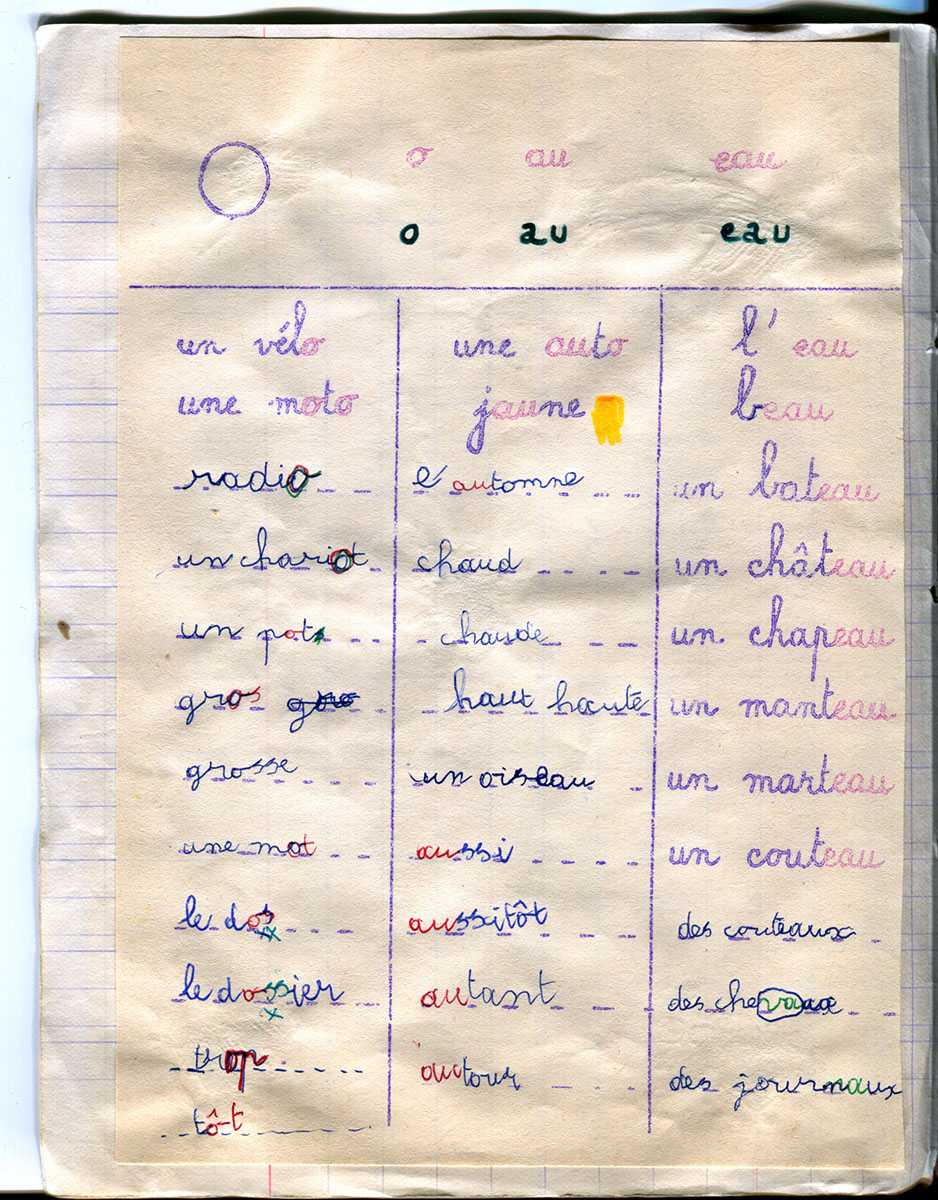 o au eau
o au eau
un vélo une auto l'eau
une moto jaune beau
radio l'automne un bateau
un chariot chaud un château
un pot chaude un chapeau
gros gro haut haute un manteau
grosse un oiseau un marteau
une mot aussi un couteau
le dos aussitôt des couteaux
le dossier autant des chevaux
trop autour des journaux
tôt